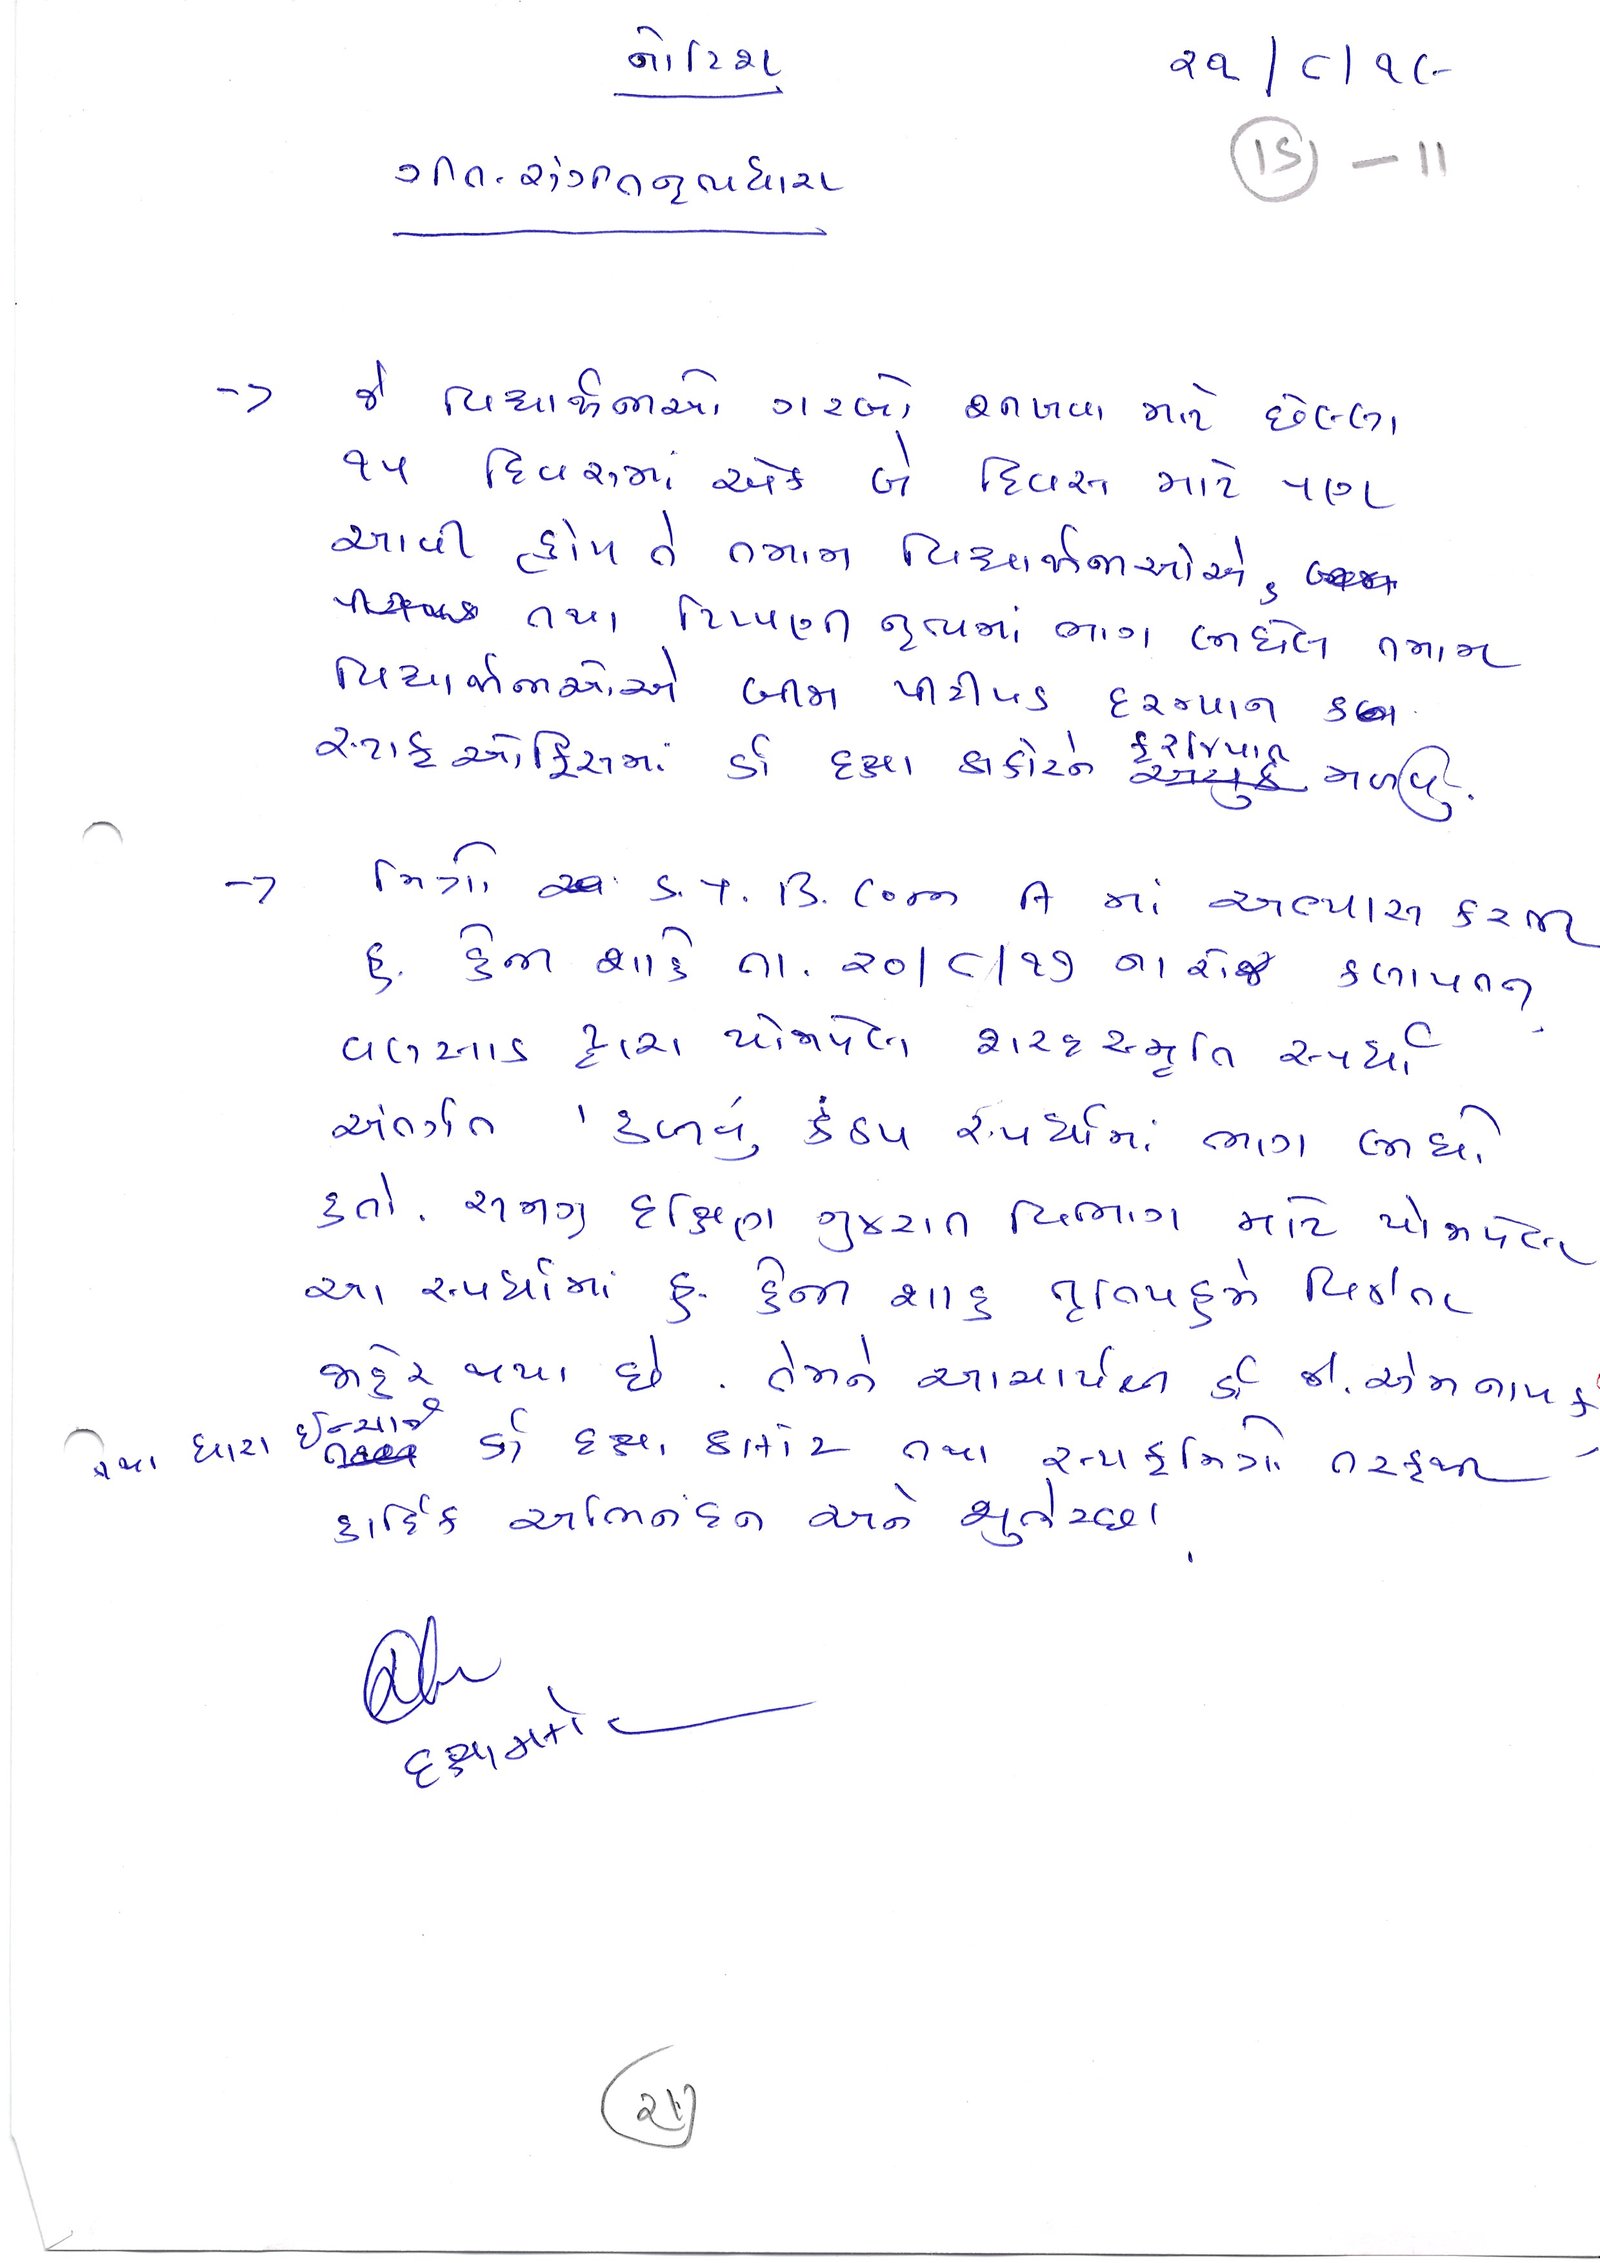 નોટિશ
૨૧/૮/૧૮
15 - 11
ગીત-સંગીતનૃત્યધારા
-> જે વિદ્યાર્થીનીઓ ગરબો શીખવા માટે છેલ્લા
૧૫ દિવસમાં એક બે દિવસ માટે પણ
આવી હોય તે તમામ વિદ્યાર્થીનીઓએ
તથા ટિપ્પણી નૃત્યમાં ભાગ લીધેલ તમામ
વિદ્યાર્થીનીઓએ બીજા પીરીયડ દરમ્યાન
સ્ટાફ ઓફિસમાં ડૉ દક્ષા ઠાકોરને ફરજિયાત મળવું.
-> મિત્રો S.Y.B.Com A માં અભ્યાસ કરતી
કુ. હેની શાહે તા. ૨૦/૮/૧૭ ના રોજ કલાયતન
વલસાડ દ્વારા યોજાયેલ શરદસ્મૃતિ સ્પર્ધા
અંતર્ગત 'હળવું કંઠ્ય સ્પર્ધામાં ભાગ લીધો
હતો. સમગ્ર દક્ષિણ ગુજરાત વિભાગ માટે યોજાયેલ
આ સ્પર્ધામાં કુ. હેની શાહ તૃતિયક્રમે વિજેતા
જાહેર થયા છે. તેમને આચાર્યશ્રી ડૉ જી. એમ નાયક
તથા ધારા ઈન્ચાર્જ ડૉ દક્ષા ઠાકોર તથા સ્ટાફમિત્રો તરફથી
હાર્દિક અભિનંદન અને શુભેચ્છા.